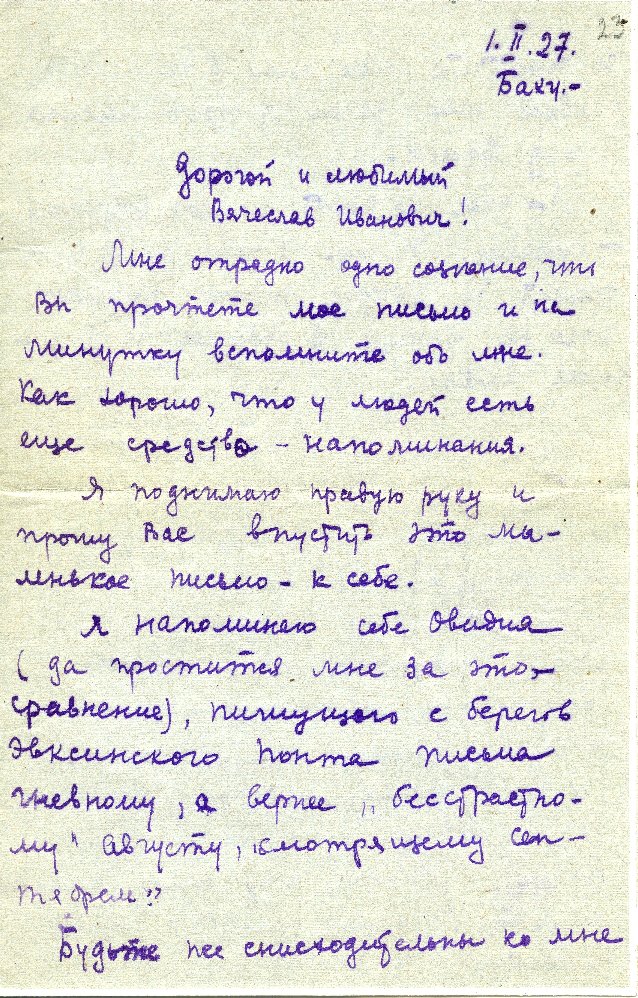 23
1.II.27.
Баку.-
Дорогой и любимый
Вячеслав Иванович!
Мне отрадно одно сознание, что
Вы прочтете мое письмо и на
минутку вспомните обо мне.
Как хорошо, что у людей есть
еще средство - напоминания.
Я поднимаю правую руку и
прошу Вас впустить это ма-
ленькое письмо - к себе.
Я напоминаю себе Овидия
(да простится мне за это -
сравнение), пишущего с берегов
Эвксинского Понта письма
гневному, а вернее „бесстрастно-
му" Августу, „смотрящему сен-
тябрем".
Будьте же снисходительны ко мне